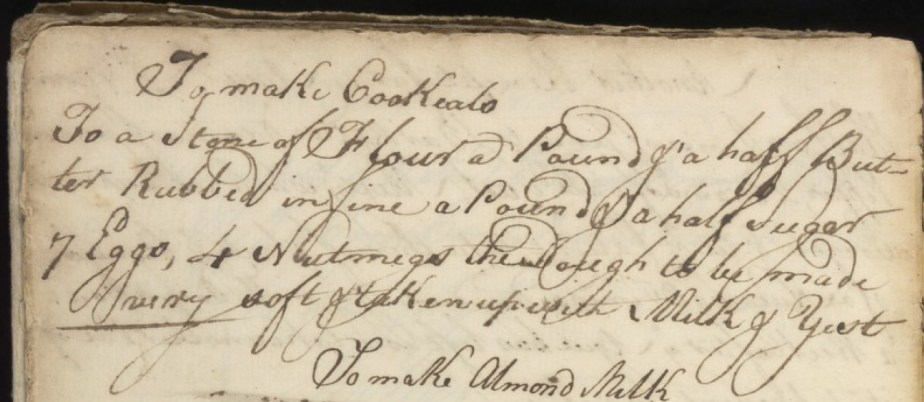 To make Cookeals
To a Stone of Flour a Pound & a half But-
ter Rubbed in fine a Pound & a half Sugar
7 Eggs, 4 Nutmegs the Dough to be made
very soft & taken up with Milk & Yest
To make Almond Milk